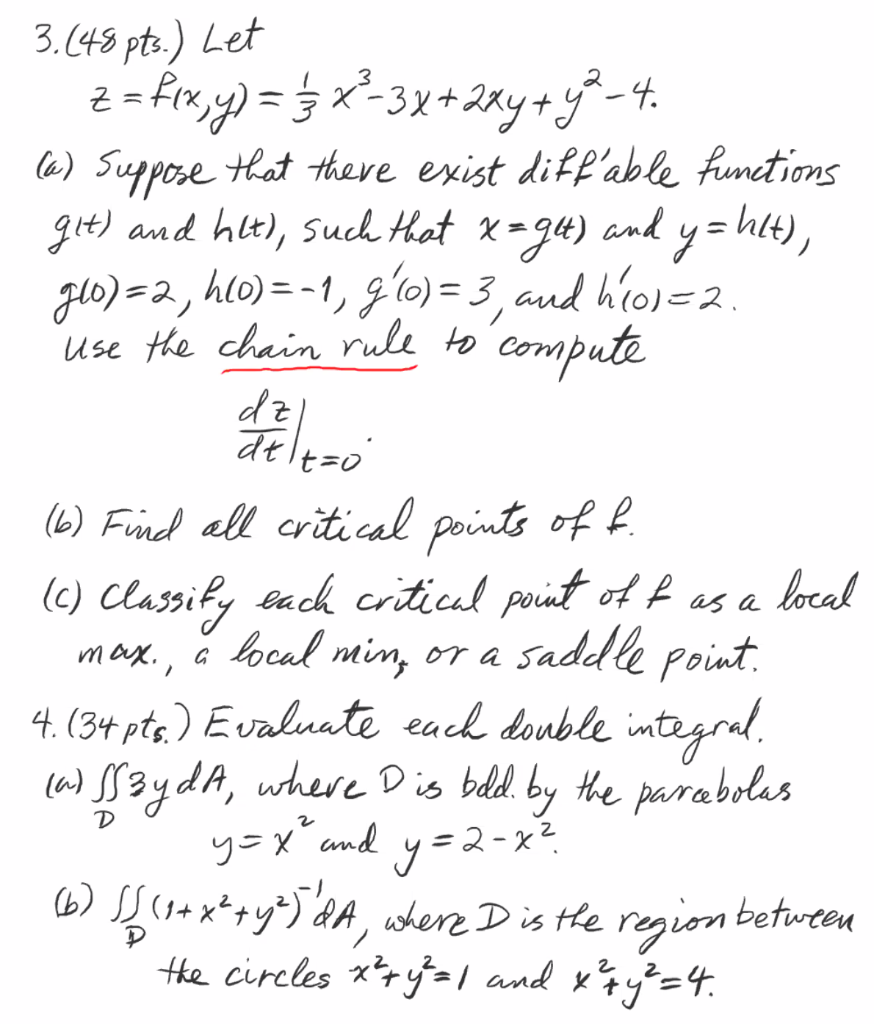 3. (48 pts.) Let
z = f(x,y) = 1/3 x³ - 3x + 2xy + y² - 4.
(a) Suppose that there exist diff'able functions
g(t) and h(t), such that x = g(t) and y = h(t),
g(0) = 2, h(0) = -1, g'(0) = 3, and h'(0) = 2.
Use the chain rule to compute
dz/dt|t=0.
(b) Find all critical points of f.
(c) Classify each critical point of f as a local
max., a local min, or a saddle point.
4. (34 pts.) Evaluate each double integral.
(a) ∬_D 3y dA, where D is bdd. by the parabolas
y = x² and y = 2 - x².
(b) ∬_D (1 + x² + y²)⁻¹ dA, where D is the region between
the circles x² + y² = 1 and x² + y² = 4.